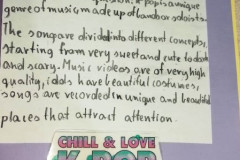 genre of music made up of band or soloists.
The song are divided into different concepts,
starting from very sweet and cute to dark
and scary. Music videos are of very high
quality, idols have beautiful costumes,
songs are recorded in unique and beautiful
places that attract attention.
CHILL & LOVE
K-POP